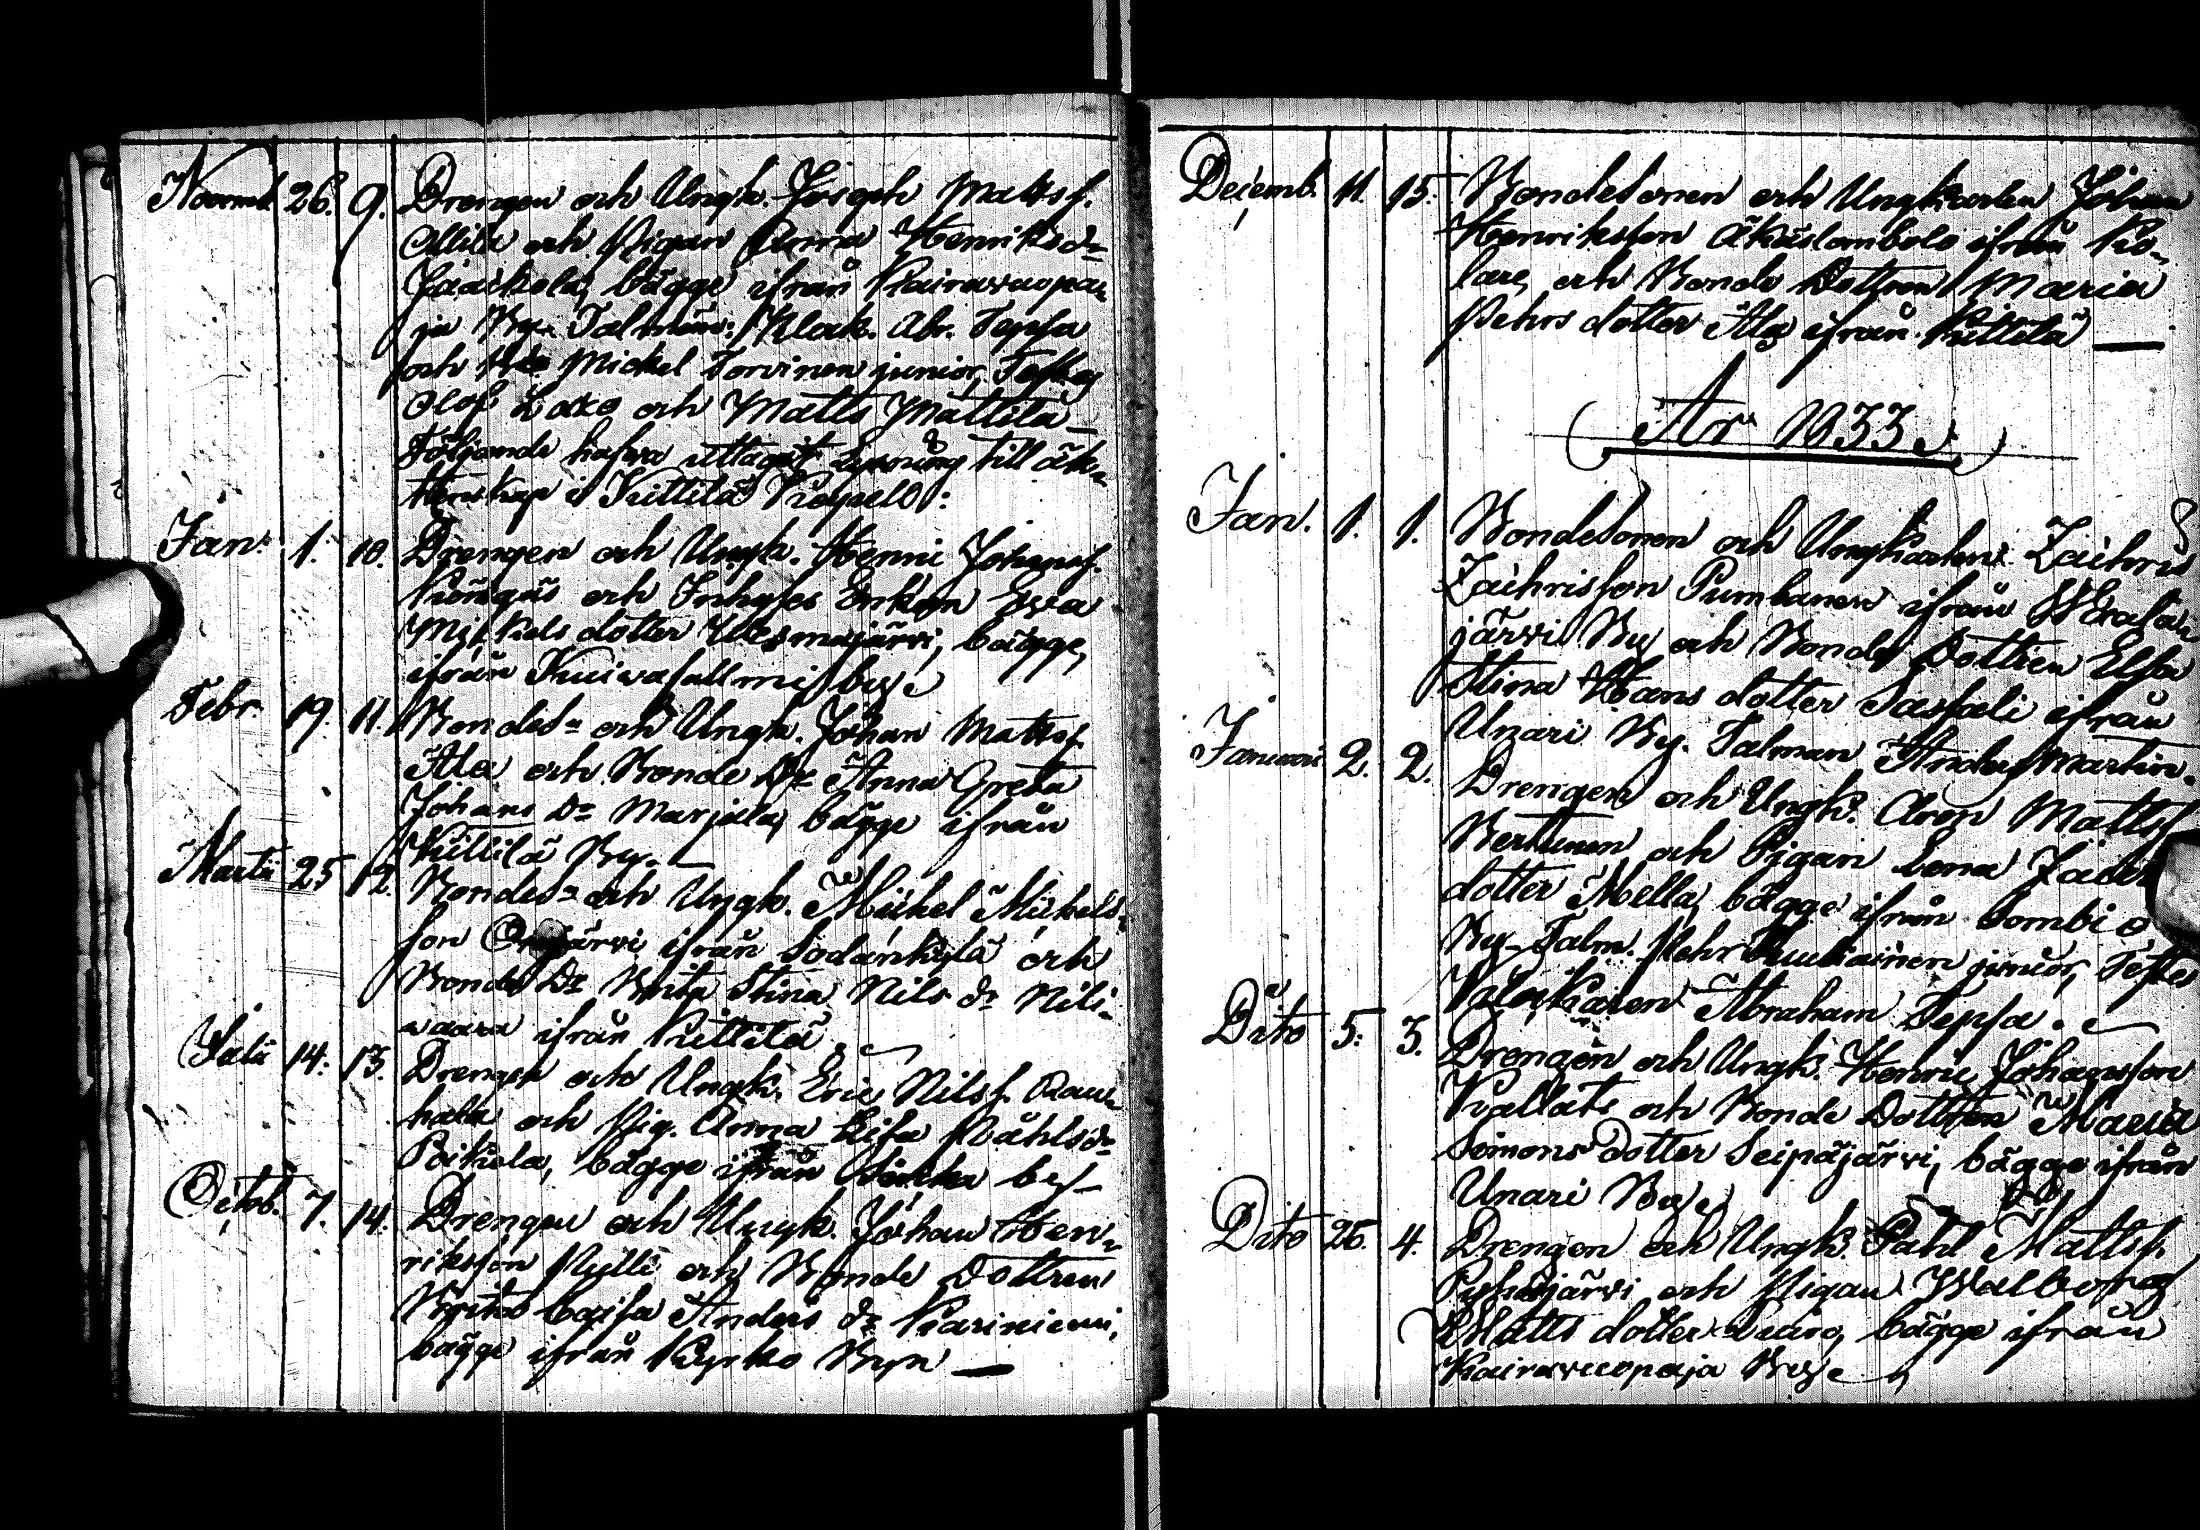 Novemb. 26. 9. Drengen och Ungk. Joseph Mattsf.
och Pigan Anna Henriksd:
Jääskola, bägge ifrån Kairavuopa-
ja By. Talman: Klock. Abr. Tepsa
och Mickel Torvinen junior, Testes
Olof Zako och Matts Mattila_
Följande hafva uttagit Lysning till äk-
tenskap i Kittilä Capell:
Jan: 1. 10. Drengen och Ungk. Henric Johansf.
Köngäs och Inhyses Enkan Eva
Mickels dotter Wesmajärvi, bägge,
ifrån Kuivasallmi by
Febr. 19. 11. Bondes: och Ungk. Johan Mattsf.
Ala och Bonde D: Anna Greta
Johans D: Marjala, bägge ifrån
Kittilä By.
Martii 25 12. Bondes: och Ungk. Michel Michels-
son ifrån Sodankylä och
Bonde D: Brita Stina Nils d: Nili-
waara ifrån Kittilä.
Julii 14. 13. Drengen och Ungk. Eric Nilsf. Rau-
hala och Pig. Anna Lisa Påhlsd:
Poikela, bägge ifrån by
Octob. 7. 14. Drengen och Ungk. Johan Hen-
riksson Kylli och Bonde Dottren
Brita Caisa Anders d: Kariniemi,
bägge ifrån Kyrko Byn
Decemb. 11. 15. Bondesonen och Ungkarlen Johan
Henriksson Äkäslombolo ifrån Ko-
lare, och Bonde Dottren Maria
Pehrs dotter Ala ifrån Kittilä
År 1833.
Jan. 1. 1. Bondesonen och Ungkarlen Zachris
Zachrisson Pumbanen ifrån
järvi By och Bonde Dottren Elsa
Stina Hans dotter Sassali ifrån
Unari By. Talman Anders Martin.
Januari 2. 2. Drengen och Ungk. Aron Mattsf
Vertinen och Pigan Lena
dotter Mella, bägge ifrån Lombio
By. Talm. Pehr junior, Testes
Klåckaren Abraham Tepsa.
Dito 5. 3. Drengen och Ungk. Henric Johansson
Kallats och Bonde Dottren Maria
Simons dotter Seipäjärvi, bägge ifrån
Unari By
Dito 26. 4. Drengen och Ungk. Pahl Mattsf.
Pyhäjärvi och Pigan Walborg
Matts dotter bägge ifrån
Kairavuopaja By